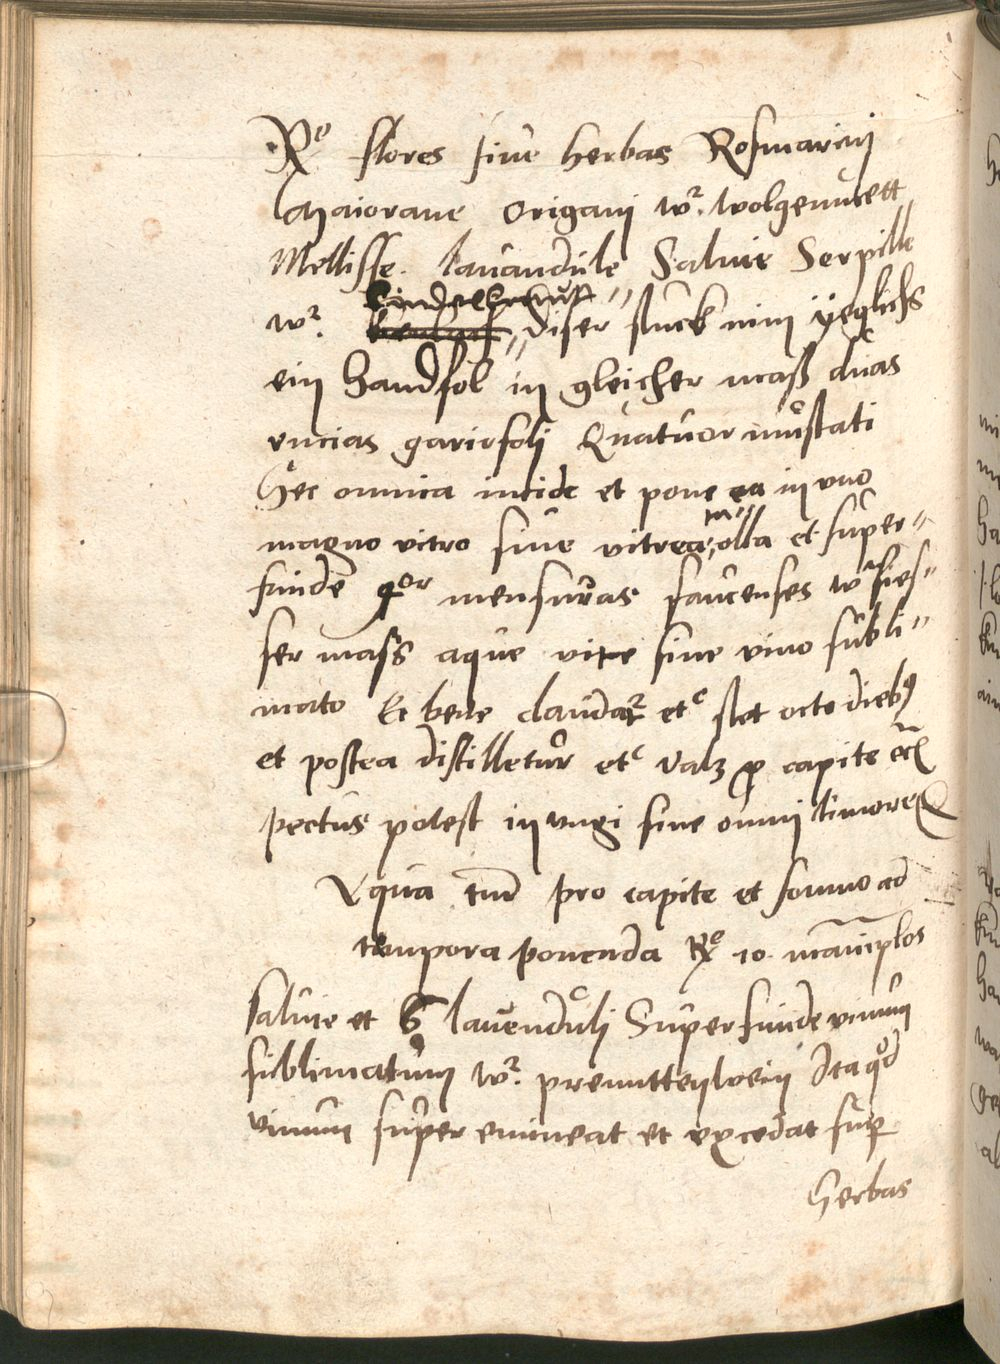 Re flores siue herbas Rosmarinj
Maiorane Origani wr. wolgemůtett
Mellisse. lauandule Saluie Serpille
wr. kindelkraut diser stuck nim yeglichs
ein handfol in gleicher maß duas
vncias gariofoli Quatuor mustati
Hec omnia incide et pone ea in vno
magno vitro siue vitrea olla et super=
funde qor mensuras faucenses wr fies=
ser mass aque vite siue vino subli=
mato Et bene claudatr etc stet octo diebꝰ
et postea distilletur etc valꝫ ꝓ capite ecz
pectus potest in vngi sine omni timore
Aqua tm̄ pro capite et somno ad
tempora ponenda Re 10. manîplos
saluie et 6 lauenduli Superfunde vinum
sublimatum wr. prenuttenwein Ita qd
vinum super emineat et excedat sup
herbas